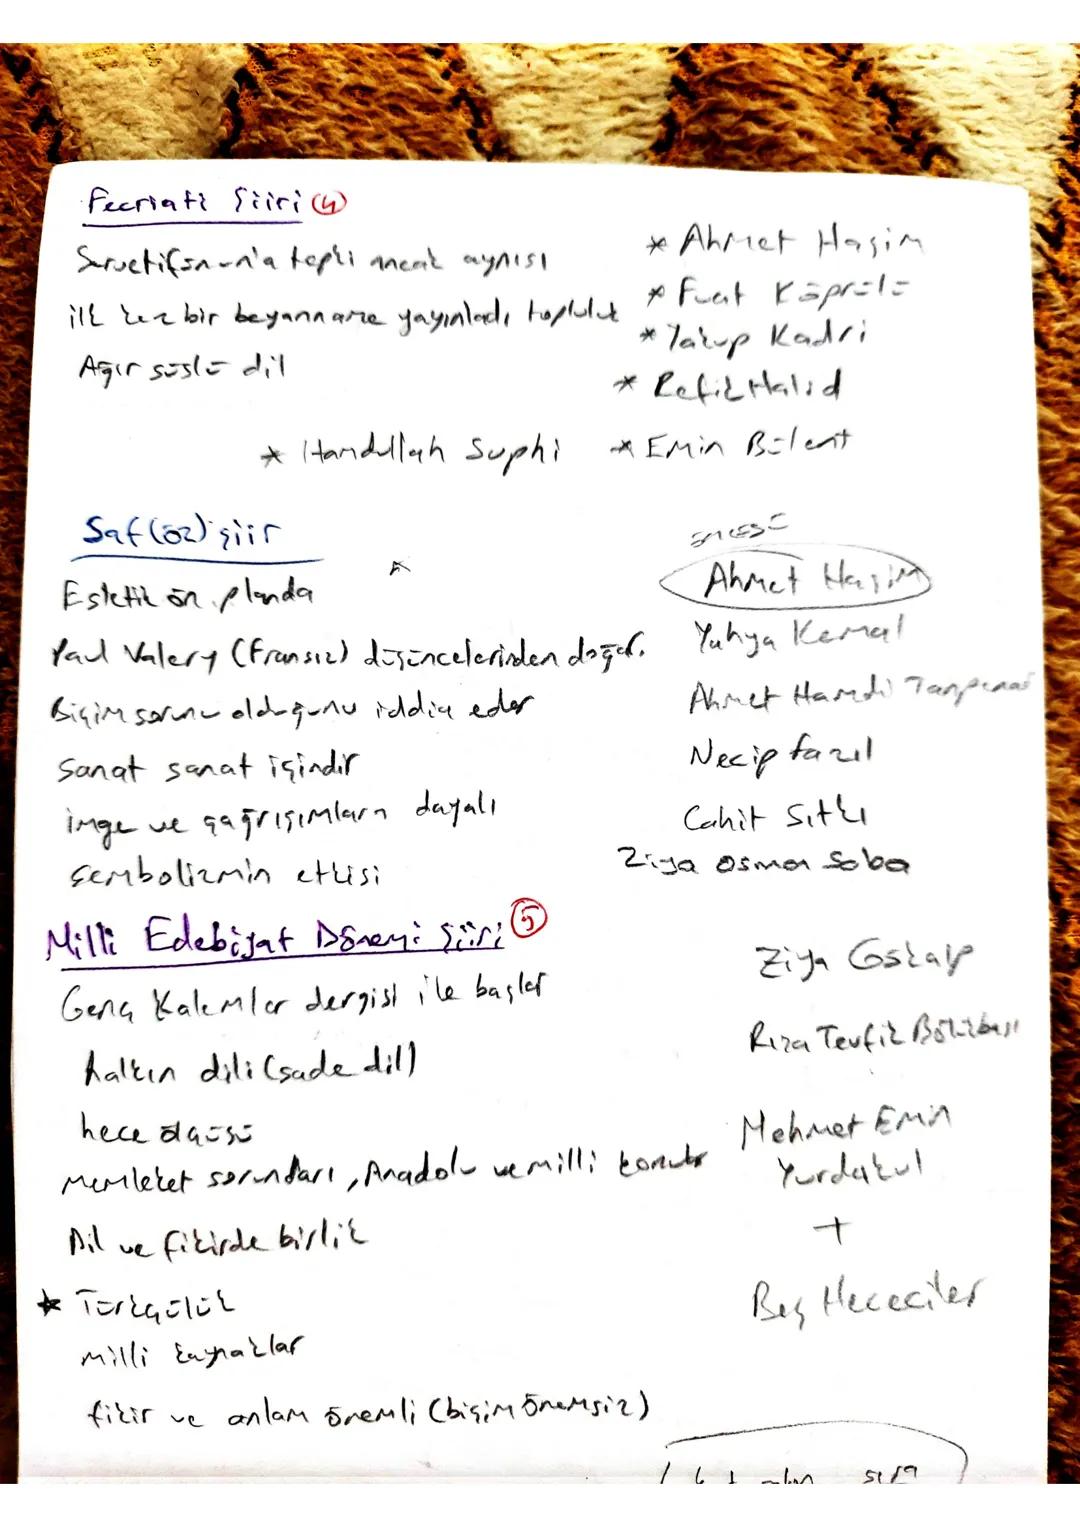 Fecriati Şiiri (4)
Servetifünun'a tepki ancak aynısı
ilk kez bir beyanname yayınladı topluluk
Ağır süslü dil
* Ahmet Haşim
* Fuat Köprülü
* Yakup Kadri
* Refik Halid
* Hamdullah Suphi * Emin Bülent
Saf (öz) şiir
Estetik ön planda
Paul Valery (Fransız) düşüncelerinden doğar.
Biçim sorunu olduğunu iddia eder
Sanat sanat içindir
imge ve çağrışımlara dayalı
sembolizmin etkisi
öncüsü
Ahmet Haşim
Yahya Kemal
Ahmet Hamdi Tanpınar
Necip fazıl
Cahit Sıtkı
Ziya Osman Saba
Milli Edebiyat Dönemi Şiiri (5)
Genç Kalemler dergisi ile başlar
halkın dili (sade dil)
hece ölçüsü
Memleket sorunları, Anadolu ve milli konular
Dil ve fikirde birlik
* Türkçülük
Milli kaynaklar
fikir ve anlam önemli (biçim önemsiz)
Ziya Gökalp
Rıza Tevfik Bölükbaşı
Mehmet Emin
Yurdakul
+
Beş Hececiler